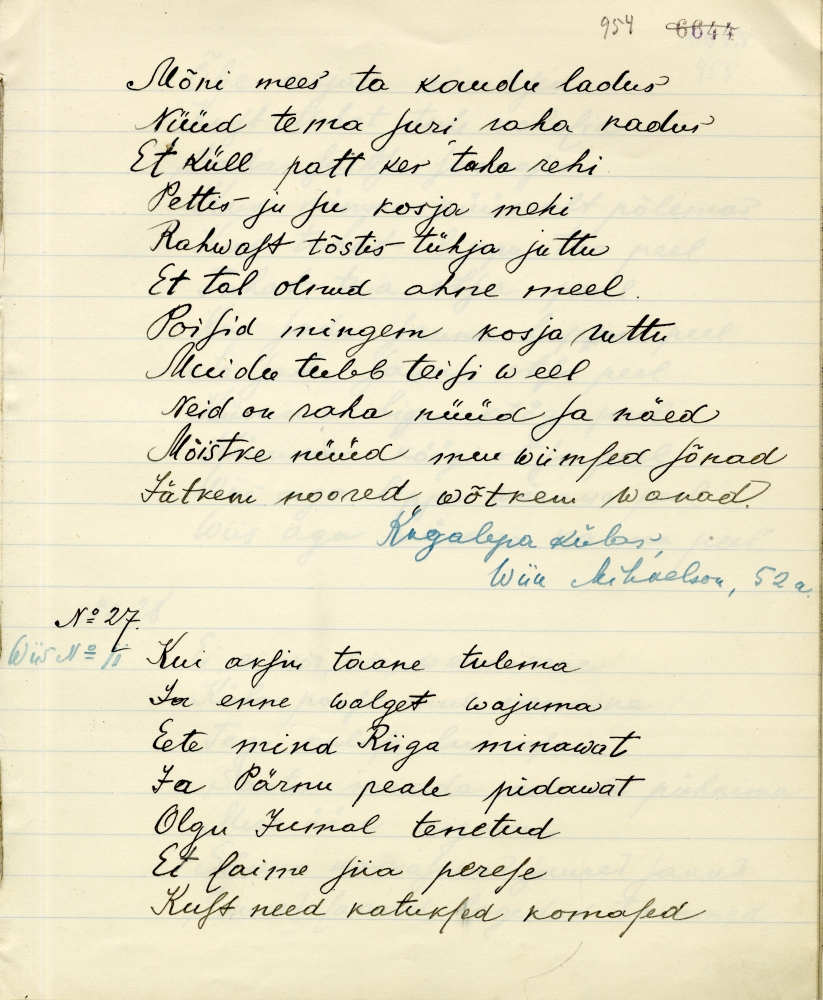 954 6644
Mõni mees ta kaudu ladus
Nüüd tema suri raha kadus
Et küll patt kes taha rehi
Pettis ju su kosja mehi
Rahwast tõstis tühja juttu
Et tal olnud ahne meel.
Poisid mingem kosja ruttu
Muidu tuleb teisi weel
Neid on raha nüüd sa näed
Mõistke nüüd mu wiimsed sõnad
Jätkem noored wõtkem wanad.
külas,
Wiiu Mihkelson, 52 a.
Nº 27.
Wiis Nº 11
Kui aksin taane tulema
Ja enne walget wajuma
Eete mind Riiga minawat
Ja Pärnu peale pidawat
Olgu Jumal tenetud
Et saime siia perese
Kust need katuksed komased